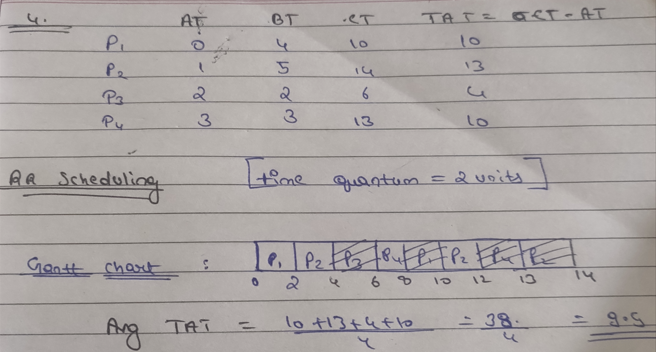 4. AT BT CT TAT = CT - AT
P1 0 4 10 10
P2 1 5 14 13
P3 2 2 6 4
P4 3 3 13 10
RR Scheduling [time quantum = 2 units]
Gantt chart : P1 P2 P3 P4 P1 P2 P4 P2
0 2 4 6 8 10 12 13 14
Avg TAT = 10+13+4+10 / 4 = 38 / 4 = 9.5